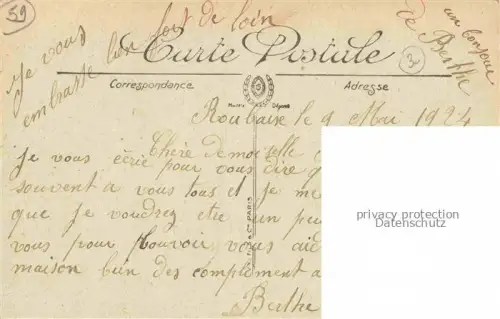 59
Je vous
embrasse bien fort de loin
un bonjour
de Berthe
Carte Postale
Correspondance
Adresse
Marque Déposé
Roubaix le 9 Mai 1924
Chère demoiselle
Je vous écrie pour vous dire
souvent a vous tous et je me
que je voudrez etre un peu
vous pour pouvoir vous aid
maison bien des complement a
Berthe
& CT PARIS
privacy protection
Datenschutz